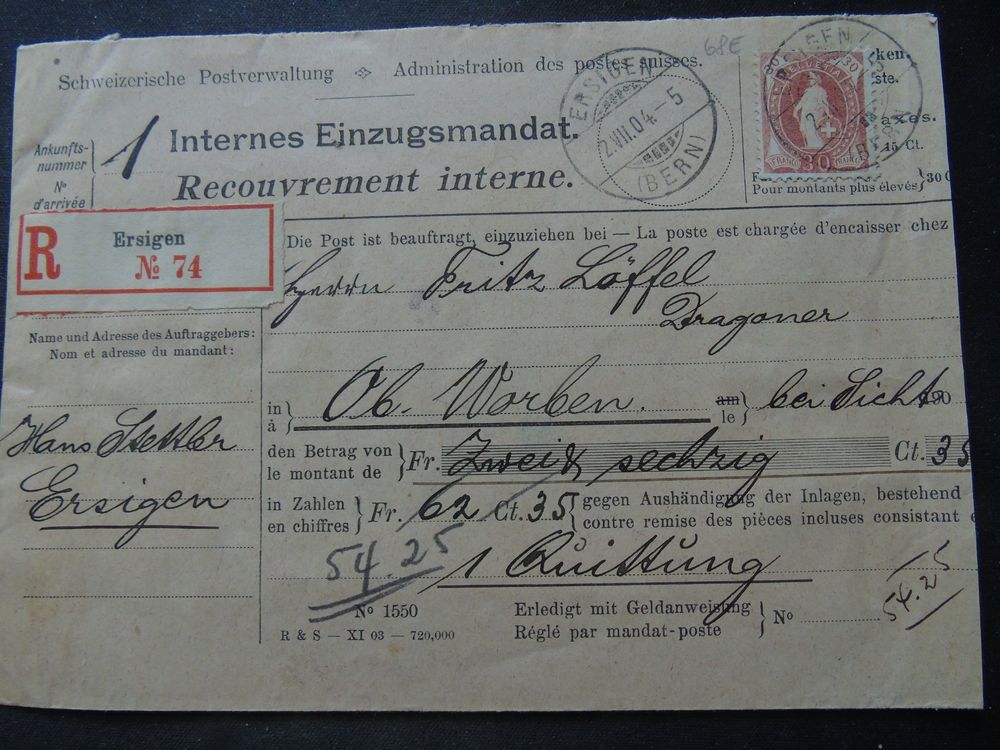 68E
Schweizerische Postverwaltung Administration des postes suisses.
ken-
ste.
axes.
15 Ct.
Pour montants plus élevés 30 C
30 HELVETIA 30
FRANCO 30 FRANCO
ERSIGEN
2.VII.04.-5
(BERN)
Ankunfts-
nummer
No
d'arrivée
1
Internes Einzugsmandat.
Recouvrement interne.
R Ersigen
No 74
Die Post ist beauftragt, einzuziehen bei — La poste est chargée d'encaisser chez
Herrn Fritz Löffel
Dragoner
Name und Adresse des Auftraggebers:
Nom et adresse du mandant:
Hans Stettler
Ersigen
in
à
Ob. Worben.
am
le
bei Sicht 190
den Betrag von
le montant de
Fr. Zwei & sechzig Ct. 35
in Zahlen
en chiffres
Fr. 62 Ct. 35
gegen Aushändigung der Inlagen, bestehend
contre remise des pièces incluses consistant e
54.25
1 Quittung
54.25
No 1550
R & S — XI 03 — 720,000
Erledigt mit Geldanweisung
Réglé par mandat-poste
No